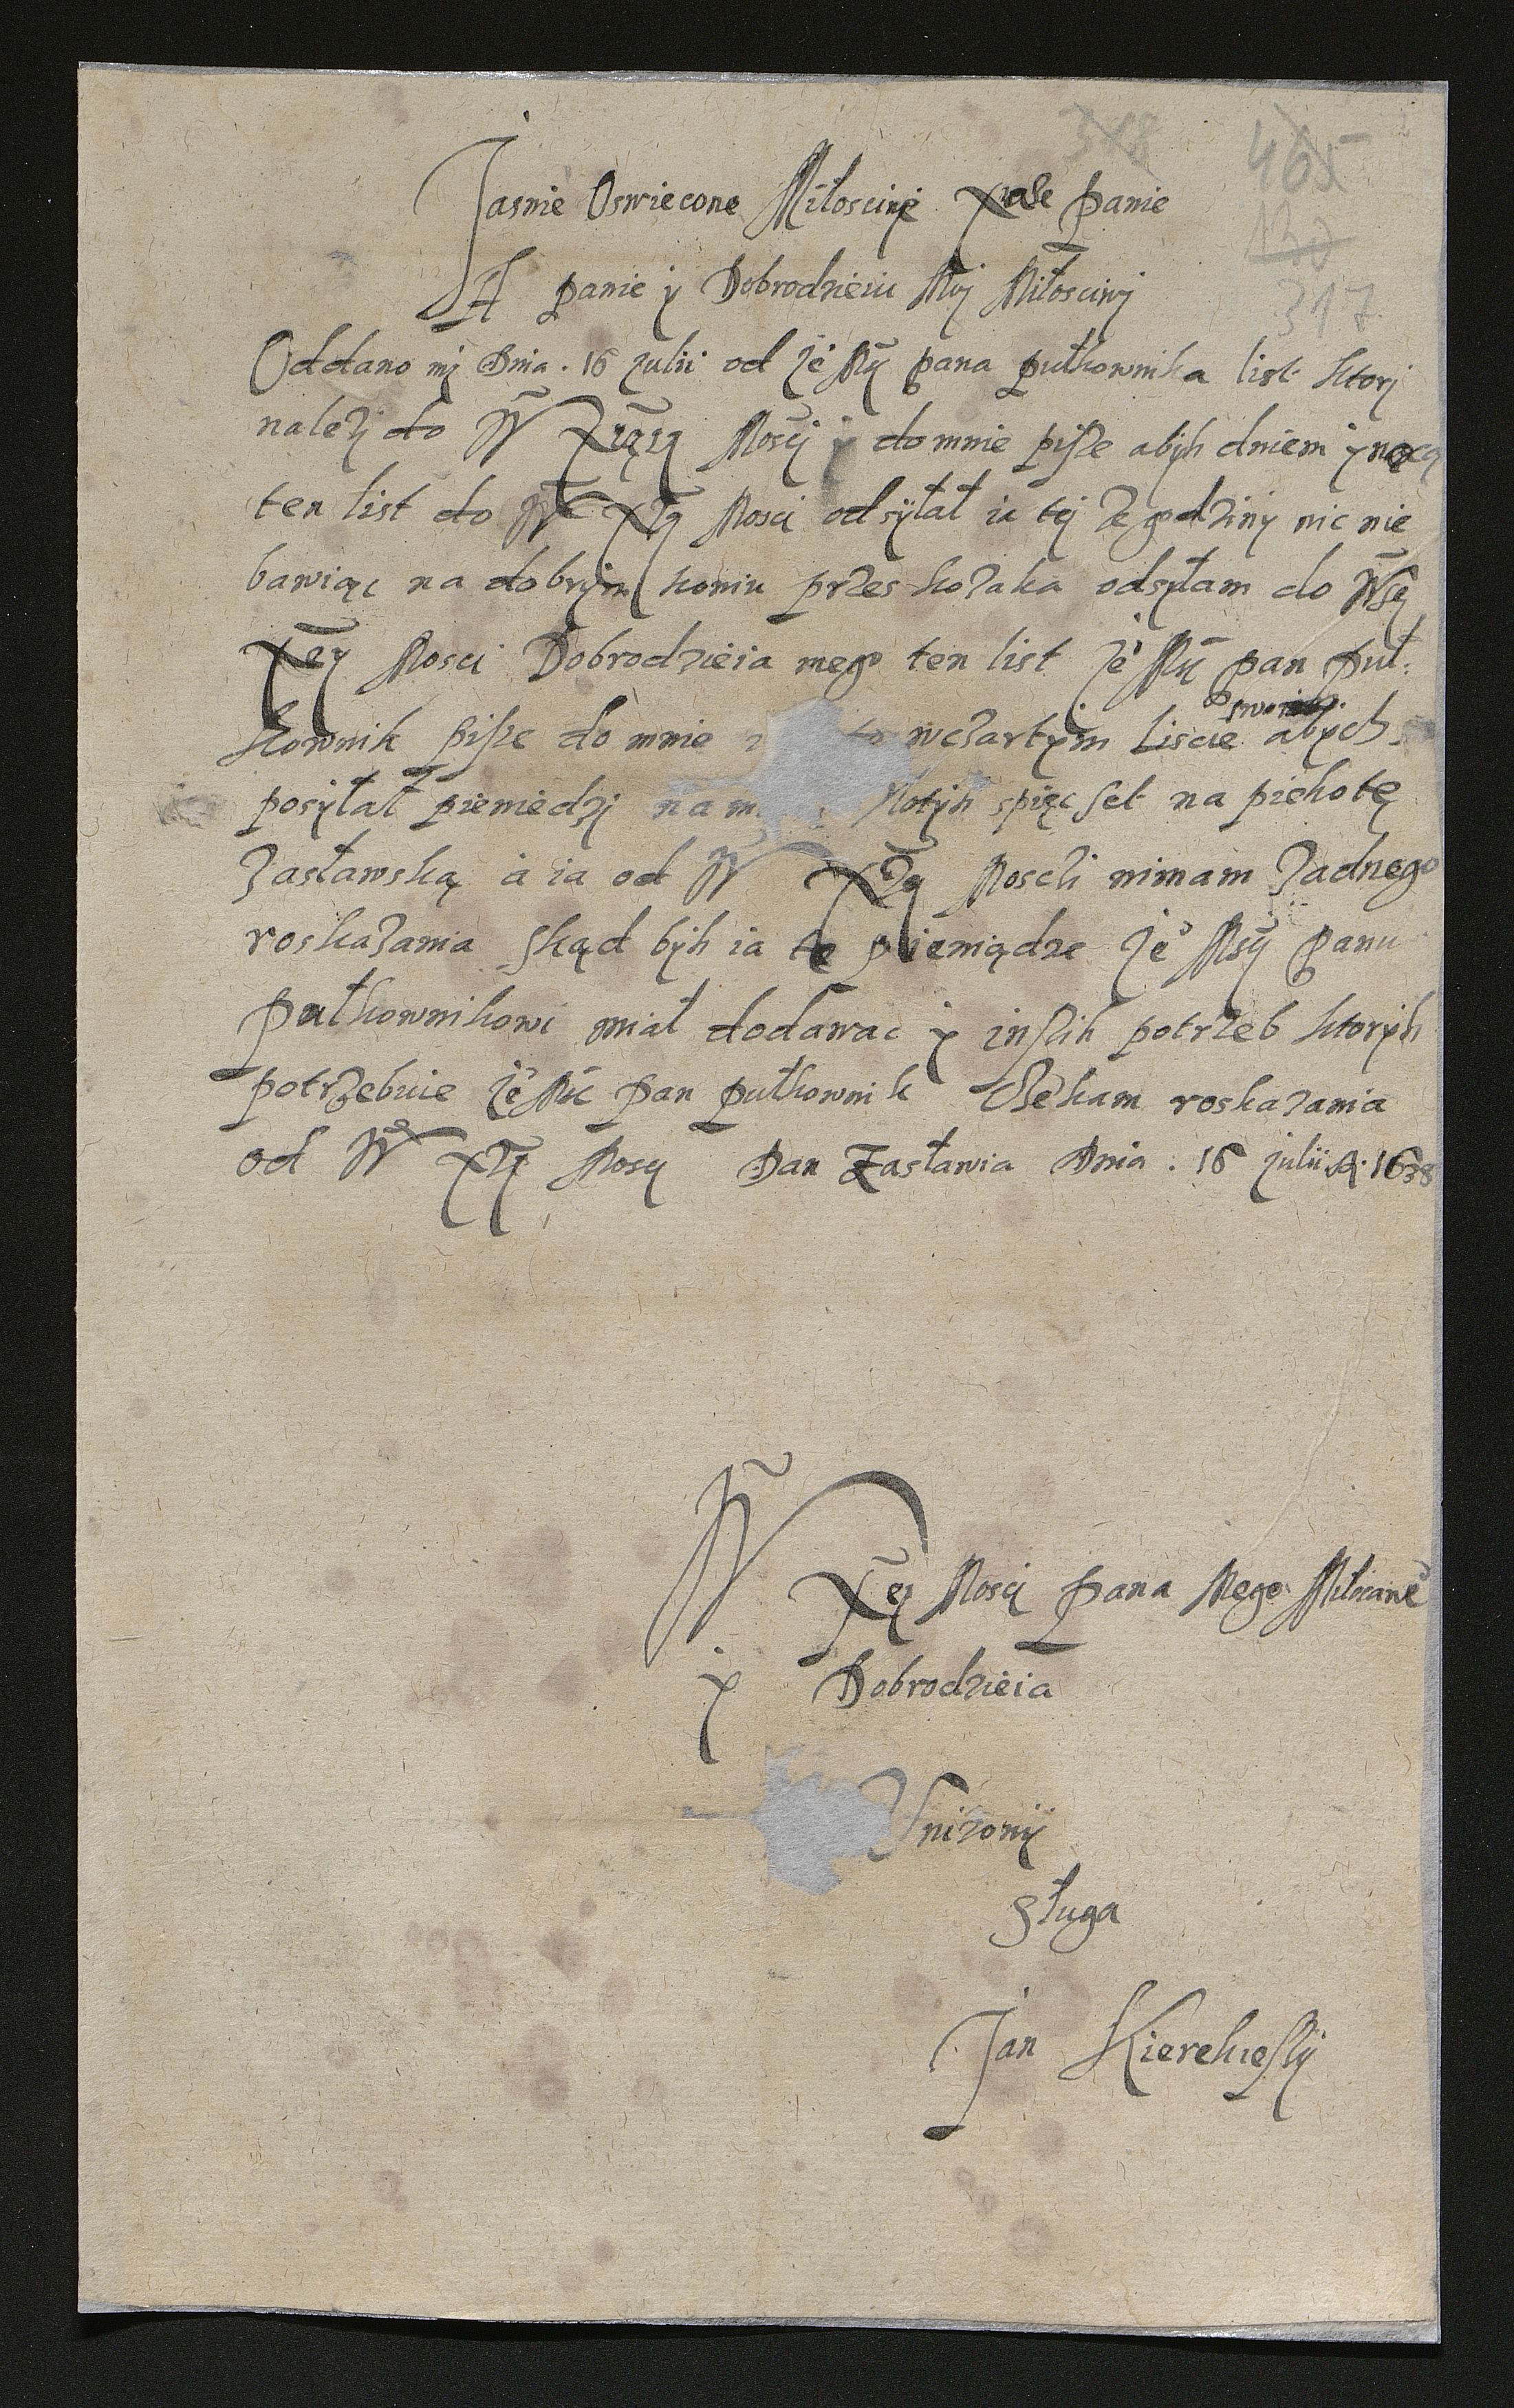 318 465
130
317
Jasnie Oswiecone Miłosciwe Xiąze Panie
A panie y Dobrodzieiu Moj Miłosciwj
Oddano mj Dnia . 16 julii od Je° Mӱ pana pułkownika list ktorj
nalezj do W Xiązą Moscj y do mnie pisze abӱh dniem y nocą
ten list do W Xzą Mosci odsӱłał ia tej ze godzinӱ nic nie
bawiąc na dobrӱm koniu przes kozaka odsӱłam do Wsej
Xej Mosci Dobrodzieia mego ten list Je° Mӱ pan puł:
kownik pisze do mnie to wczartӱm Liscie swoim abych
posӱłał pieniedzj na złotӱh spięc set na piehotę
Zasławską a ia od W Xzą Moscзi nimam zadnego
roskazania skąd bӱh ia te pieniądze Je° Msӱ panu
Pułkownikowi miał dodawac y inszih potrzeb ktorӱh
potrzebuie Je° Mc pan pułkownik Czekam roskazania
od W Xzj Moscy Dan Zasławia Dnia . 16 julii A. 1638
W Xej Moscj Pana Mego Miłosciwe°
y Dobrodzieia
Unizonӱ
Sługa
Jan Kierekieszӱ